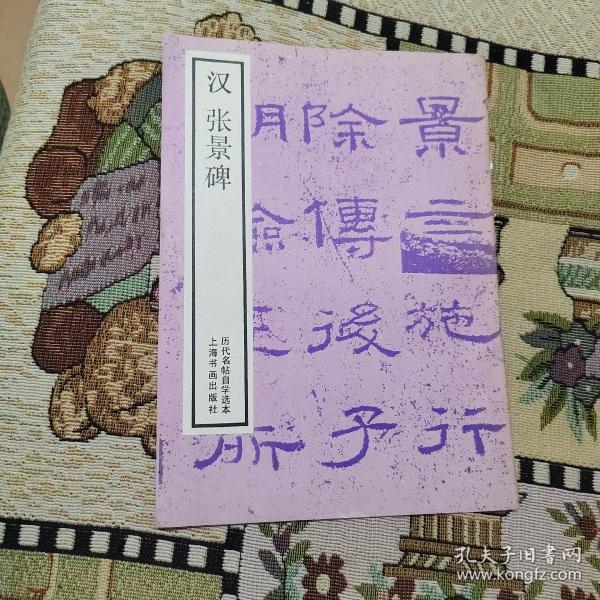 汉 张景碑
历代名帖自学选本
上海书画出版社
景言施行
除傳後子
孔夫子旧书网
www.kongfz.com